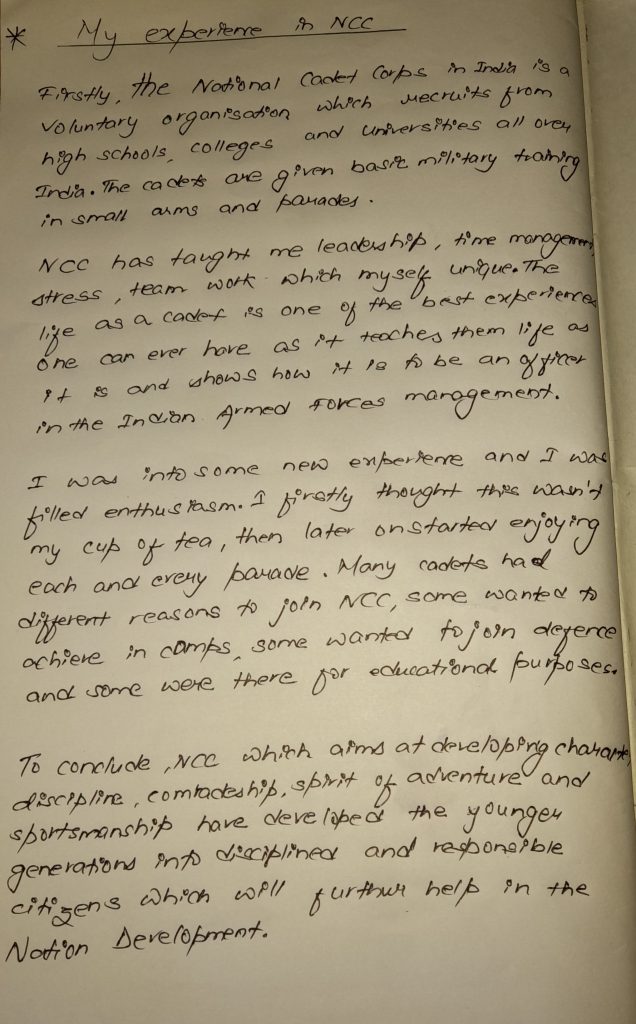 * My experience in NCC
Firstly, the National Cadet Corps in India is a
voluntary organisation which recruits from
high schools, colleges and universities all over
India. The cadets are given basic military training
in small arms and parades.
NCC has taught me leadership, time management,
stress, team work which myself unique. The
life as a cadet is one of the best experiences
one can ever have as it teaches them life as
it is and shows how it is to be an officer
in the Indian Armed Forces management.
I was into some new experience and I was
filled enthusiasm. I firstly thought this wasn't
my cup of tea, then later on started enjoying
each and every parade. Many cadets had
different reasons to join NCC, some wanted to
achieve in camps, some wanted to join defence
and some were there for educational purposes.
To conclude, NCC which aims at developing character,
discipline, comradeship, spirit of adventure and
sportsmanship have developed the younger
generations into disciplined and responsible
citizens which will further help in the
Nation Development.